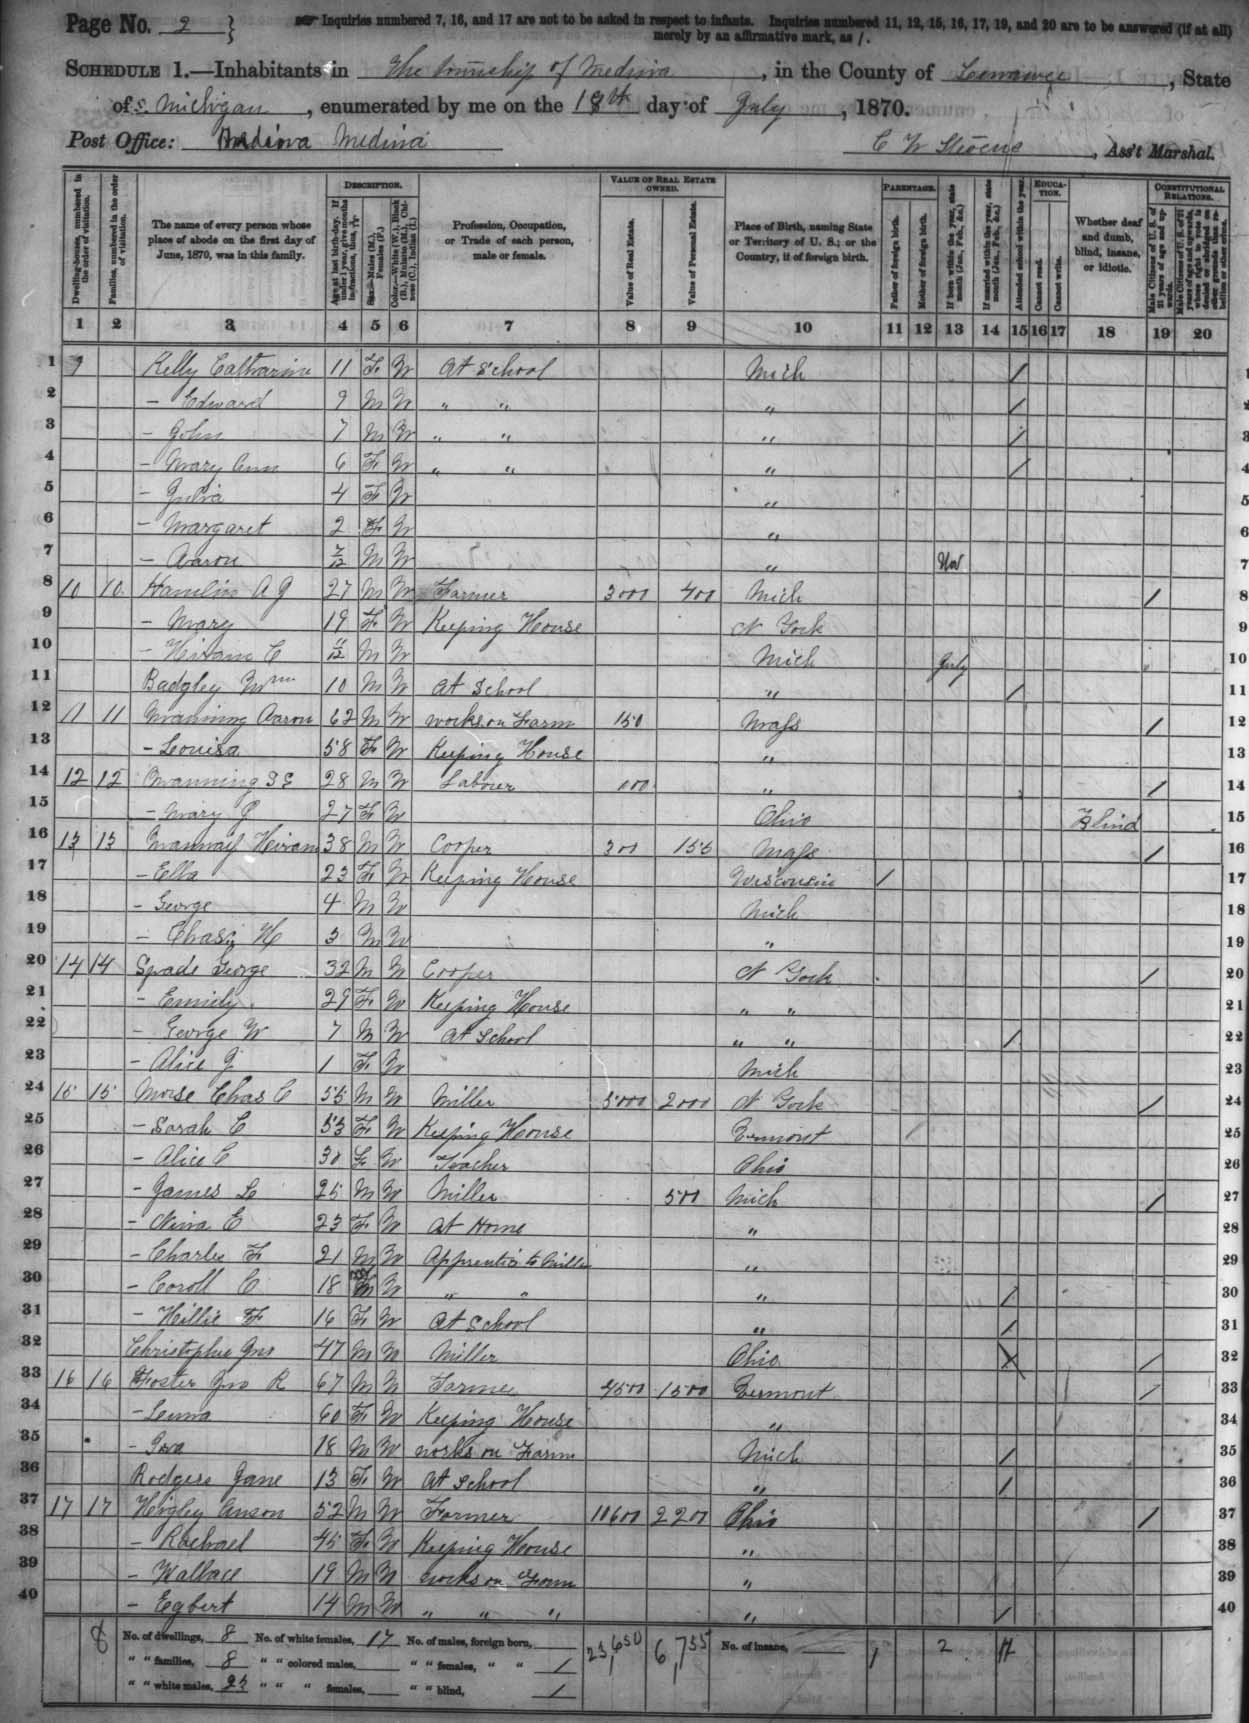 Page No. 2 }
Inquiries numbered 7, 16, and 17 are not to be asked in respect to infants. Inquiries numbered 11, 12, 15, 16, 17, 19, and 20 are to be answered (if at all)
merely by an affirmative mark, as /.
SCHEDULE 1.—Inhabitants in The township of Medina, in the County of Lenawee, State
of S. Michigan, enumerated by me on the 18th day of July, 1870.
Post Office: Medina
C W Stevens, Ass't Marshal.
Dwelling-houses, numbered in the order of visitation.
Families, numbered in the order of visitation.
The name of every person whose place of abode on the first day of June, 1870, was in this family.
DESCRIPTION.
Age at last birth-day. If under 1 year, give months in fractions, thus,
Sex.—Males (M.), Females (F.)
Color.—White (W.), Black (B.), Mulatto (M.), Chinese (C.), Indian (I.)
Profession, Occupation, or Trade of each person, male or female.
VALUE OF REAL ESTATE OWNED.
Value of Real Estate.
Value of Personal Estate.
Place of Birth, naming State or Territory of U. S.; or the Country, if of foreign birth.
PARENTAGE.
Father of foreign birth.
Mother of foreign birth.
If born within the year, state month (Jan., Feb., &c.)
If married within the year, state month (Jan., Feb., &c.)
Attended school within the year.
EDUCATION.
Cannot read.
Cannot write.
Whether deaf and dumb, blind, insane, or idiotic.
CONSTITUTIONAL RELATIONS.
Male Citizens of U. S. of 21 years of age and upwards.
1 2 3 4 5 6 7 8 9 10 11 12 13 14 15 16 17 18 19 20
1 9 Kelly Catharine 11 F W At School Mich / 1
2 - Edward 9 M W " " " / 2
3 - John 7 M W " " " / 3
4 - Mary Ann 6 F W " " " / 4
5 - Julia 4 F W " 5
6 - Margaret 2 F W " 6
7 - Aaron 7/12 M W " Nov 7
8 10 10 Hamlin A G 27 M W Farmer 3000 400 Mich / 8
9 - Mary 19 F W Keeping House N York 9
10 - Hiram C 11/12 M W Mich July 10
11 Badgley Wm 10 M W At School " / 11
12 11 11 Manning Aaron 62 M W works on Farm 150 Mass / 12
13 - Louisa 58 F W Keeping House " 13
14 12 12 Manning 28 M W Labour 100 " / 14
15 - Mary 27 F W Ohio Blind 15
16 13 13 Hiram 38 M W Cooper 300 155 Mass / 16
17 - Ella 23 F W Keeping House Wisconsin / 17
18 - George 4 M W Mich 18
19 - Chas H 3 M W " 19
20 14 14 Spade George 32 M W Cooper N York / 20
21 - Emily 29 F W Keeping House " " 21
22 - George W 7 M W At School " " / 22
23 - Alice J 1 F W Mich 23
24 15 15 Morse Chas C 55 M W Miller 5000 2000 N York / 24
25 - Sarah E 53 F W Keeping House Vermont 25
26 - Alice C 30 F W Teacher Ohio 26
27 - James L 25 M W Miller 500 Mich / 27
28 - Nina E 23 F W At Home " 28
29 - Charles F 21 M W Apprentice to Miller " 29
30 - Coroll C 18 M W " " " / 30
31 - Hillie F 16 F W At School " / 31
32 Christopher Jno 47 M W Miller Ohio X / 32
33 16 16 Foster Jno R 67 M W Farmer 4500 1500 Vermont / 33
34 - 60 F W Keeping House " 34
35 - Ira 18 M W works on Farm Mich / 35
36 Rodgers Jane 13 F W At School " / 36
37 17 17 Higley Anson 52 M W Farmer 10600 2200 Ohio / 37
38 - Rachael 45 F W Keeping House " 38
39 - Wallace 19 M W works on Farm " 39
40 - Egbert 14 M W " " " " / 40
8 No. of dwellings, 8 No. of white females, 17 No. of males, foreign born, 23,650 6,755 No. of insane, 1 2
" " families, 8 " " colored males, " " females, " " 1
" " white males, 23 " " " females, " " blind, 1